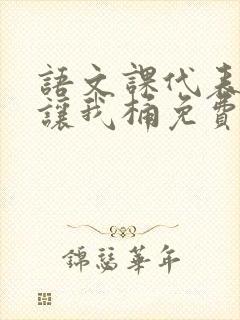 語文課代表
讓我桶免費
錦瑟華年